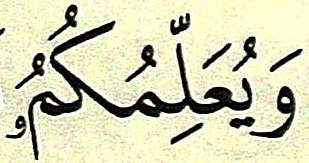 وَيُعَلِّمُكُمُۥ